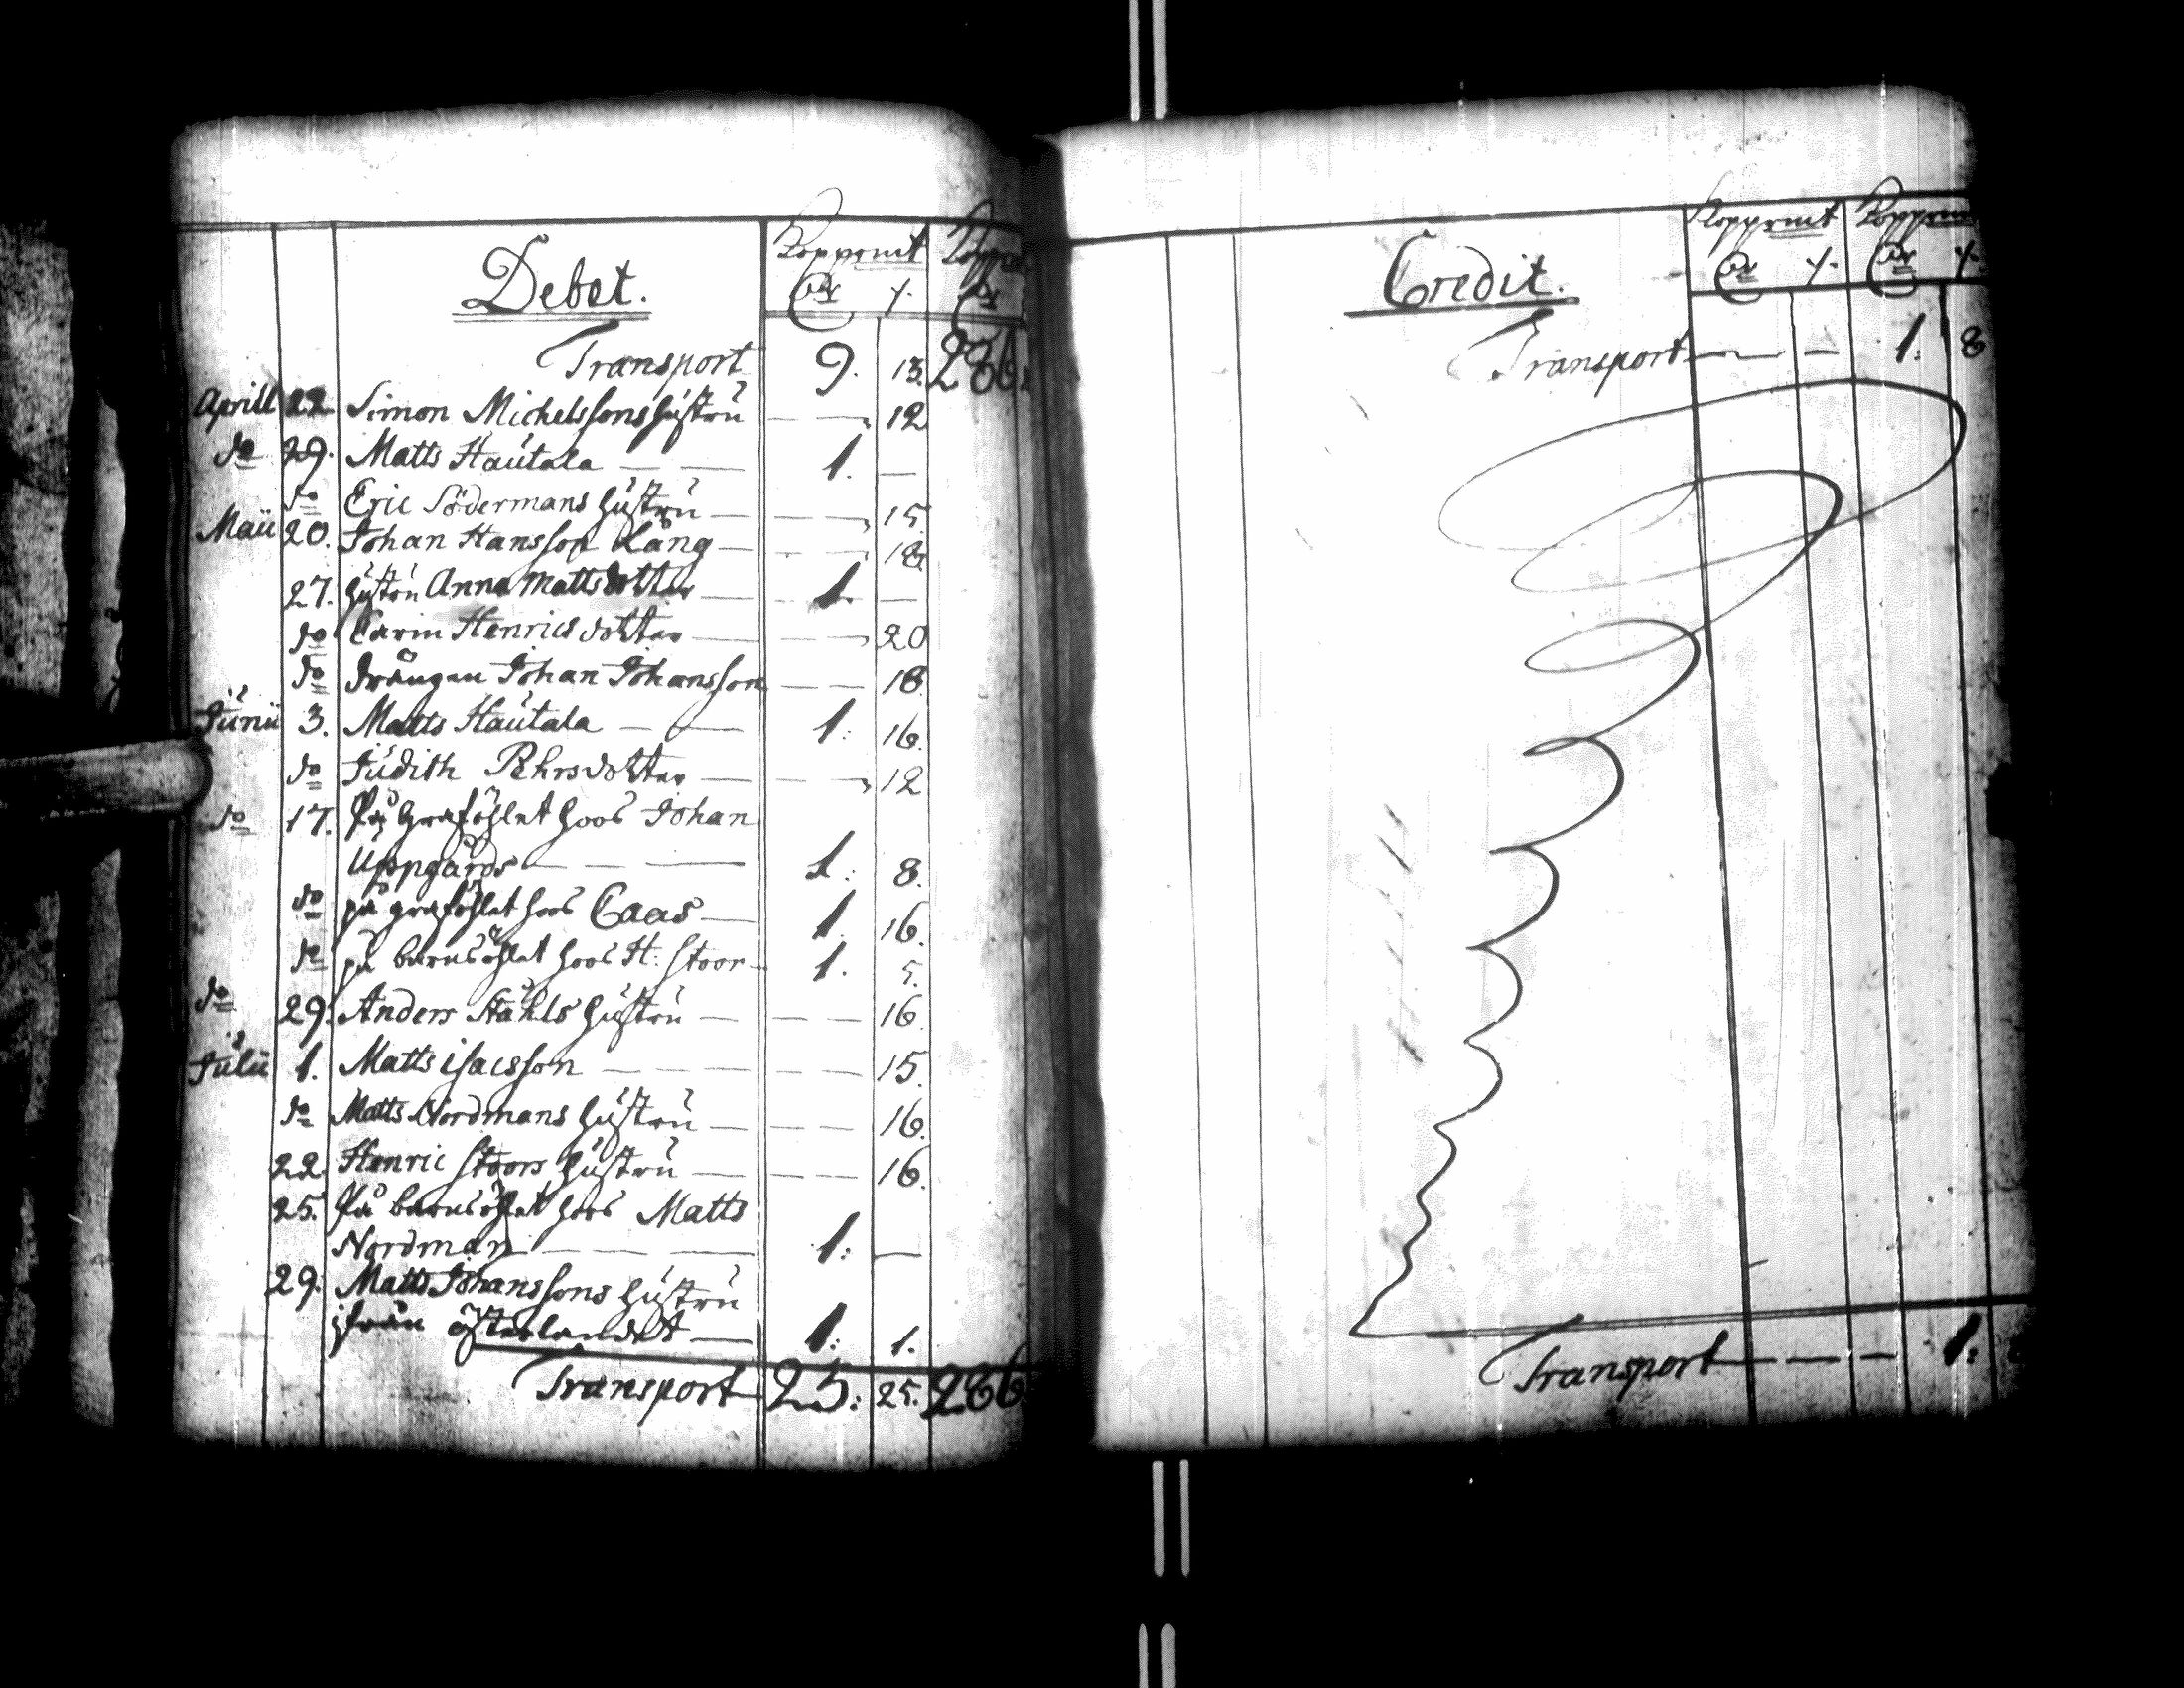 Debet.
Kopprmt Kopprmt
Transport 9. 13. 286
Aprill 22. Simon Michelssons hustru — 12
do 29. Matts Hautala — 1. —
do Eric Södermans hustru — 15
Maii 20. Johan Hansson Lång — 18
27. hustru Anna Mattsdotter — 1. —
do Carin Henricsdotter — 20
do drängen Johan Johansson — 18
Junii 3. Matts Hautala — 1: 16.
do Judith Pehrsdotter — 12
do 17. På Grafölet hoos Johan
Uppgårds — 1: 8.
do på grafölet hoos Caas — 1. 16.
do på barnsölet hoos H: Stoor — 1. 5.
do 29. Anders Ståhls hustru — 16.
Julii 1. Matts isacsson — 15.
do Matts Nordmans hustru — 16.
22. Henric Stoors hustru — 16.
25. På barnsölet hoos Matts
Nordman — 1: —
29. Matts Johanssons hustru
ifrån österlandet — 1: 1.
Transport 25: 25. 286
Credit.
Kopprmt Kopprmt
Transport — 1: 8
Transport — 1: